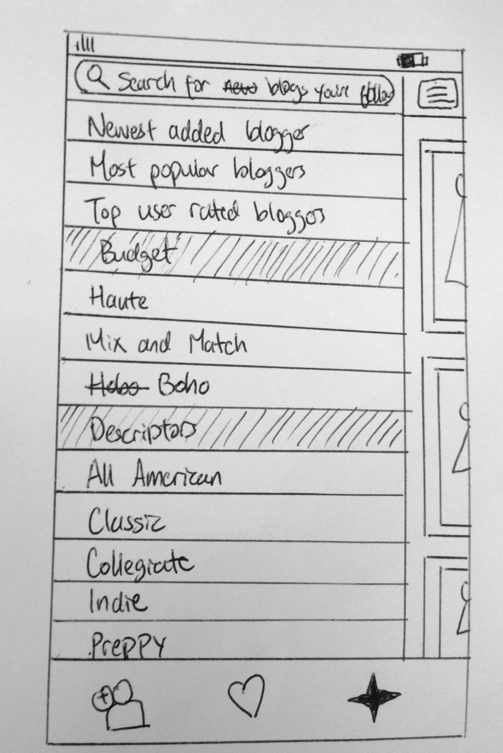 Search for blogs you're follow
Newest added blogger
Most popular bloggers
Top user rated bloggers
Budget
Haute
Mix and Match
Boho
Descriptors
All American
Classic
Collegiate
Indie
Preppy